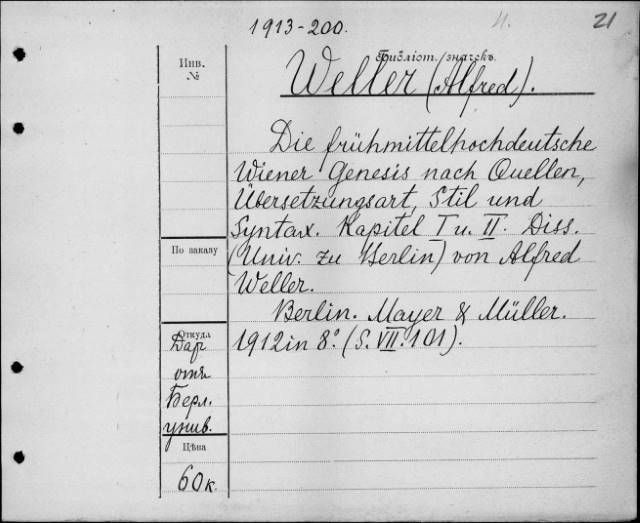 1913-200.
4.
21
Инв.
№
Библіот. значекъ.
Weller (Alfred).
Die frühmittelhochdeutsche
Wiener Genesis nach Quellen,
Übersetzungsart, Stil und
Syntax. Kapitel I u. II. Diss.
По заказу
(Univ. zu Berlin) von Alfred
Weller.
Berlin. Mayer & Müller.
Откуда
1912 in 8.° (S. VII. 101).
Дар
отъ
Берл.
унив.
Цѣна
60 к.